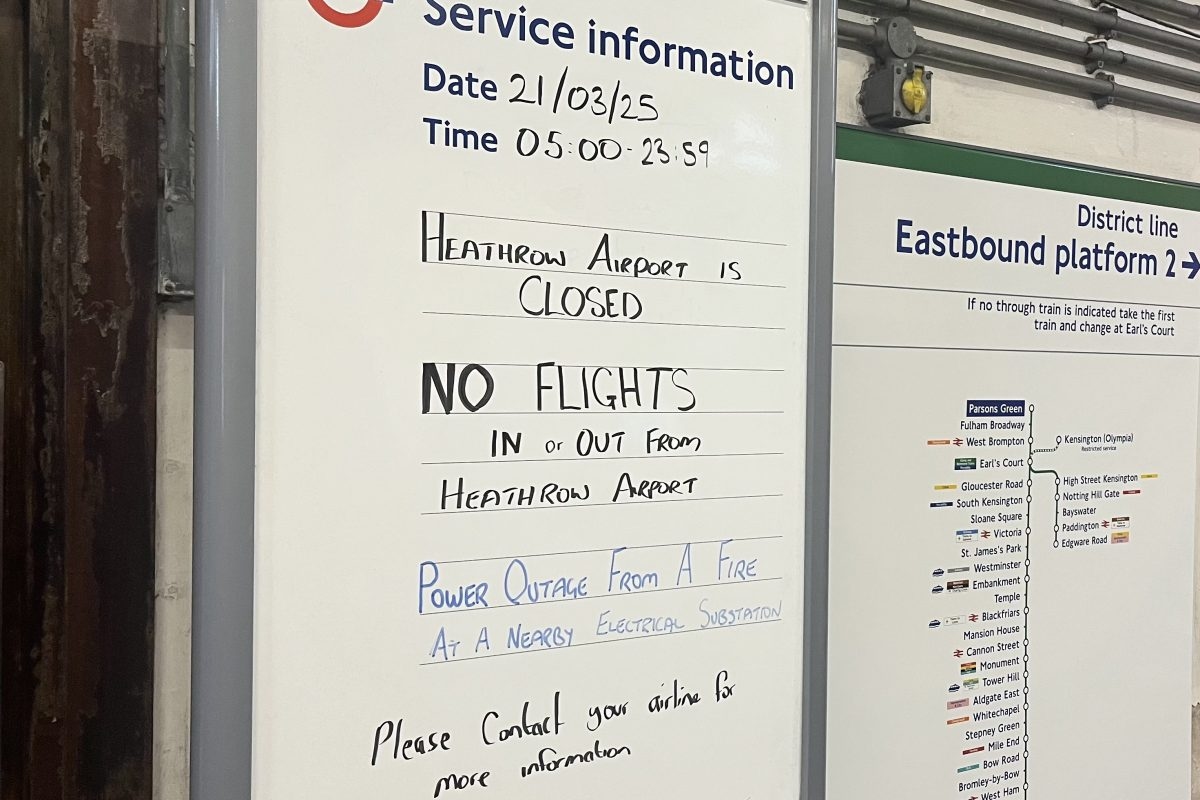 Service information
Date 21/03/25
Time 05:00-23:59
HEATHROW AIRPORT IS
CLOSED
NO FLIGHTS
IN or OUT FROM
HEATHROW AIRPORT
POWER OUTAGE FROM A FIRE
AT A NEARBY ELECTRICAL SUBSTATION
Please Contact your airline for
more information
District line
Eastbound platform 2
If no through train is indicated take the first
train and change at Earl's Court
Parsons Green
Fulham Broadway
West Brompton
Kensington (Olympia)
Restricted service
Earl's Court
High Street Kensington
Notting Hill Gate
Bayswater
Paddington
Edgware Road
Gloucester Road
South Kensington
Sloane Square
Victoria
St. James's Park
Westminster
Embankment
Temple
Blackfriars
Mansion House
Cannon Street
Monument
Tower Hill
Aldgate East
Whitechapel
Stepney Green
Mile End
Bow Road
Bromley-by-Bow
West Ham